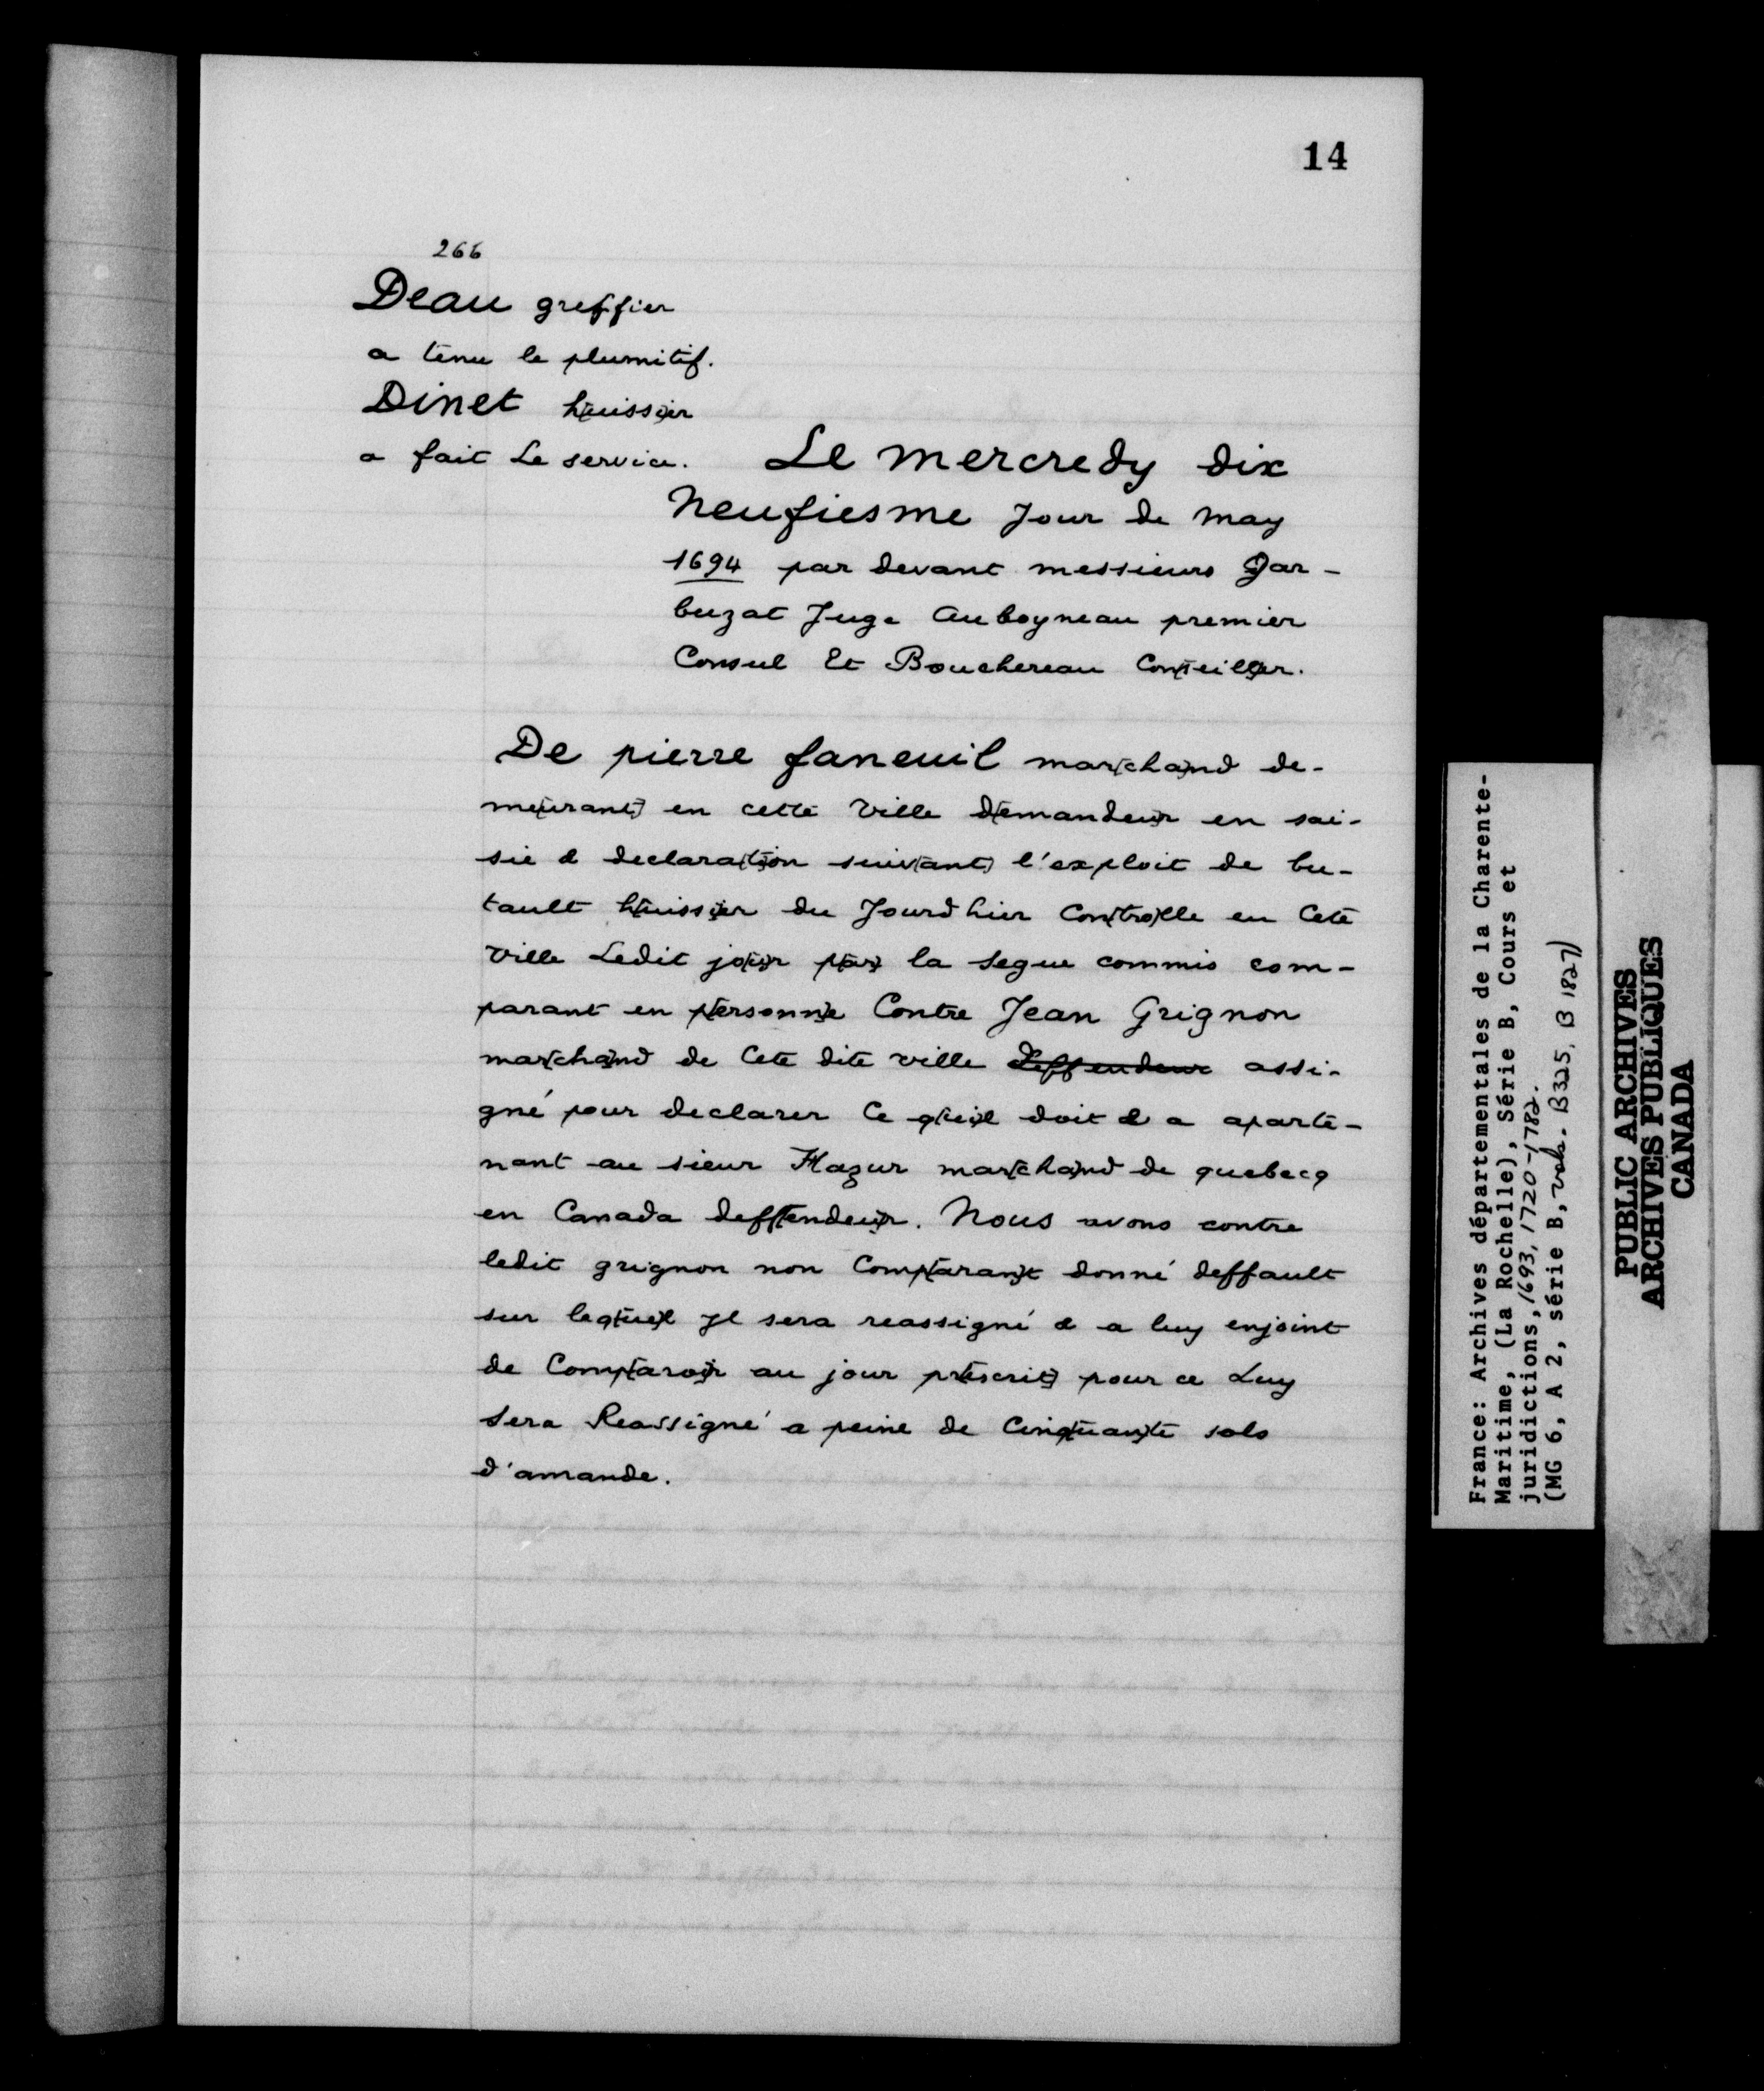 14
266
Deau greffier
a tenu le plumitif.
Dinet h(uissi)er
a fait Le service.
Le mercredy dix
Neufiesme Jour de may
1694 par devant messieurs Gar-
buzat Juge Auboyneau premier
Consul Et Bouchereau Con(seill)er.
De pierre faneuil mar(cha)nd de-
m(eurant) en cette Ville d(emandeu)r en sai-
sie & declara(ti)on suiv(ant) l'exploit de bu-
tault h(uissi)er du Jourdhier Con(tro)lle en Cete
Ville Ledit jo(u)r p(ar) la segue commis com-
parant en p(ersonn)e Contre Jean Grignon
mar(cha)nd de Cete dite ville deffendeur assi-
gné pour declarer Ce q(u'i)l doit & a aparte-
nant au sieur Hazur mar(cha)nd de quebecq
en Canada deff(endeu)r. Nous avons contre
ledit grignon non Comp(aran)t donné deffault
sur leq(ue)l Jl sera reassigné & a luy enjoint
de Comp(aroi)r au jour p(rescrit) pour ce Luy
sera Reassigné a peine de Cinq(uan)te sols
d'amande.
France: Archives départementales de la Charente-
Maritime, (La Rochelle), Série B, Cours et
juridictions, 1693, 1720-1782.
(MG 6, A 2, série B, vols. B325, B 1827)
PUBLIC ARCHIVES
ARCHIVES PUBLIQUES
CANADA